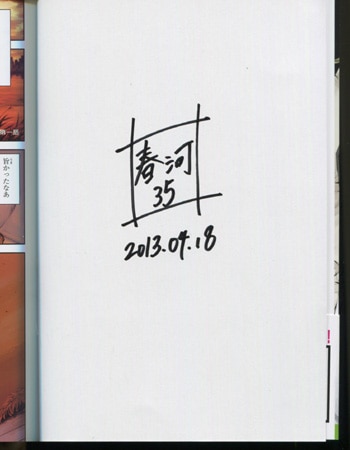 春河
35
2013.04.18
第一話
旨かったなあ